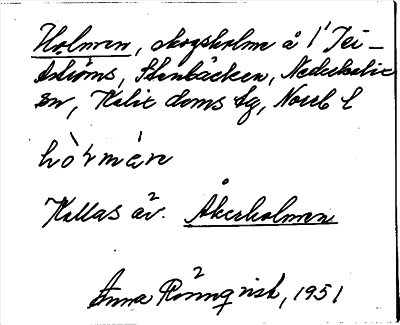 Holmen, skogsholme å l' Tei-
ströms, Stenbäcken, Nederkalix
sn, Kalix doms sg, Norrb l
hòl'mǝn
Kallas äv. Åkerholmen
Anna Rönnqvist, 1951